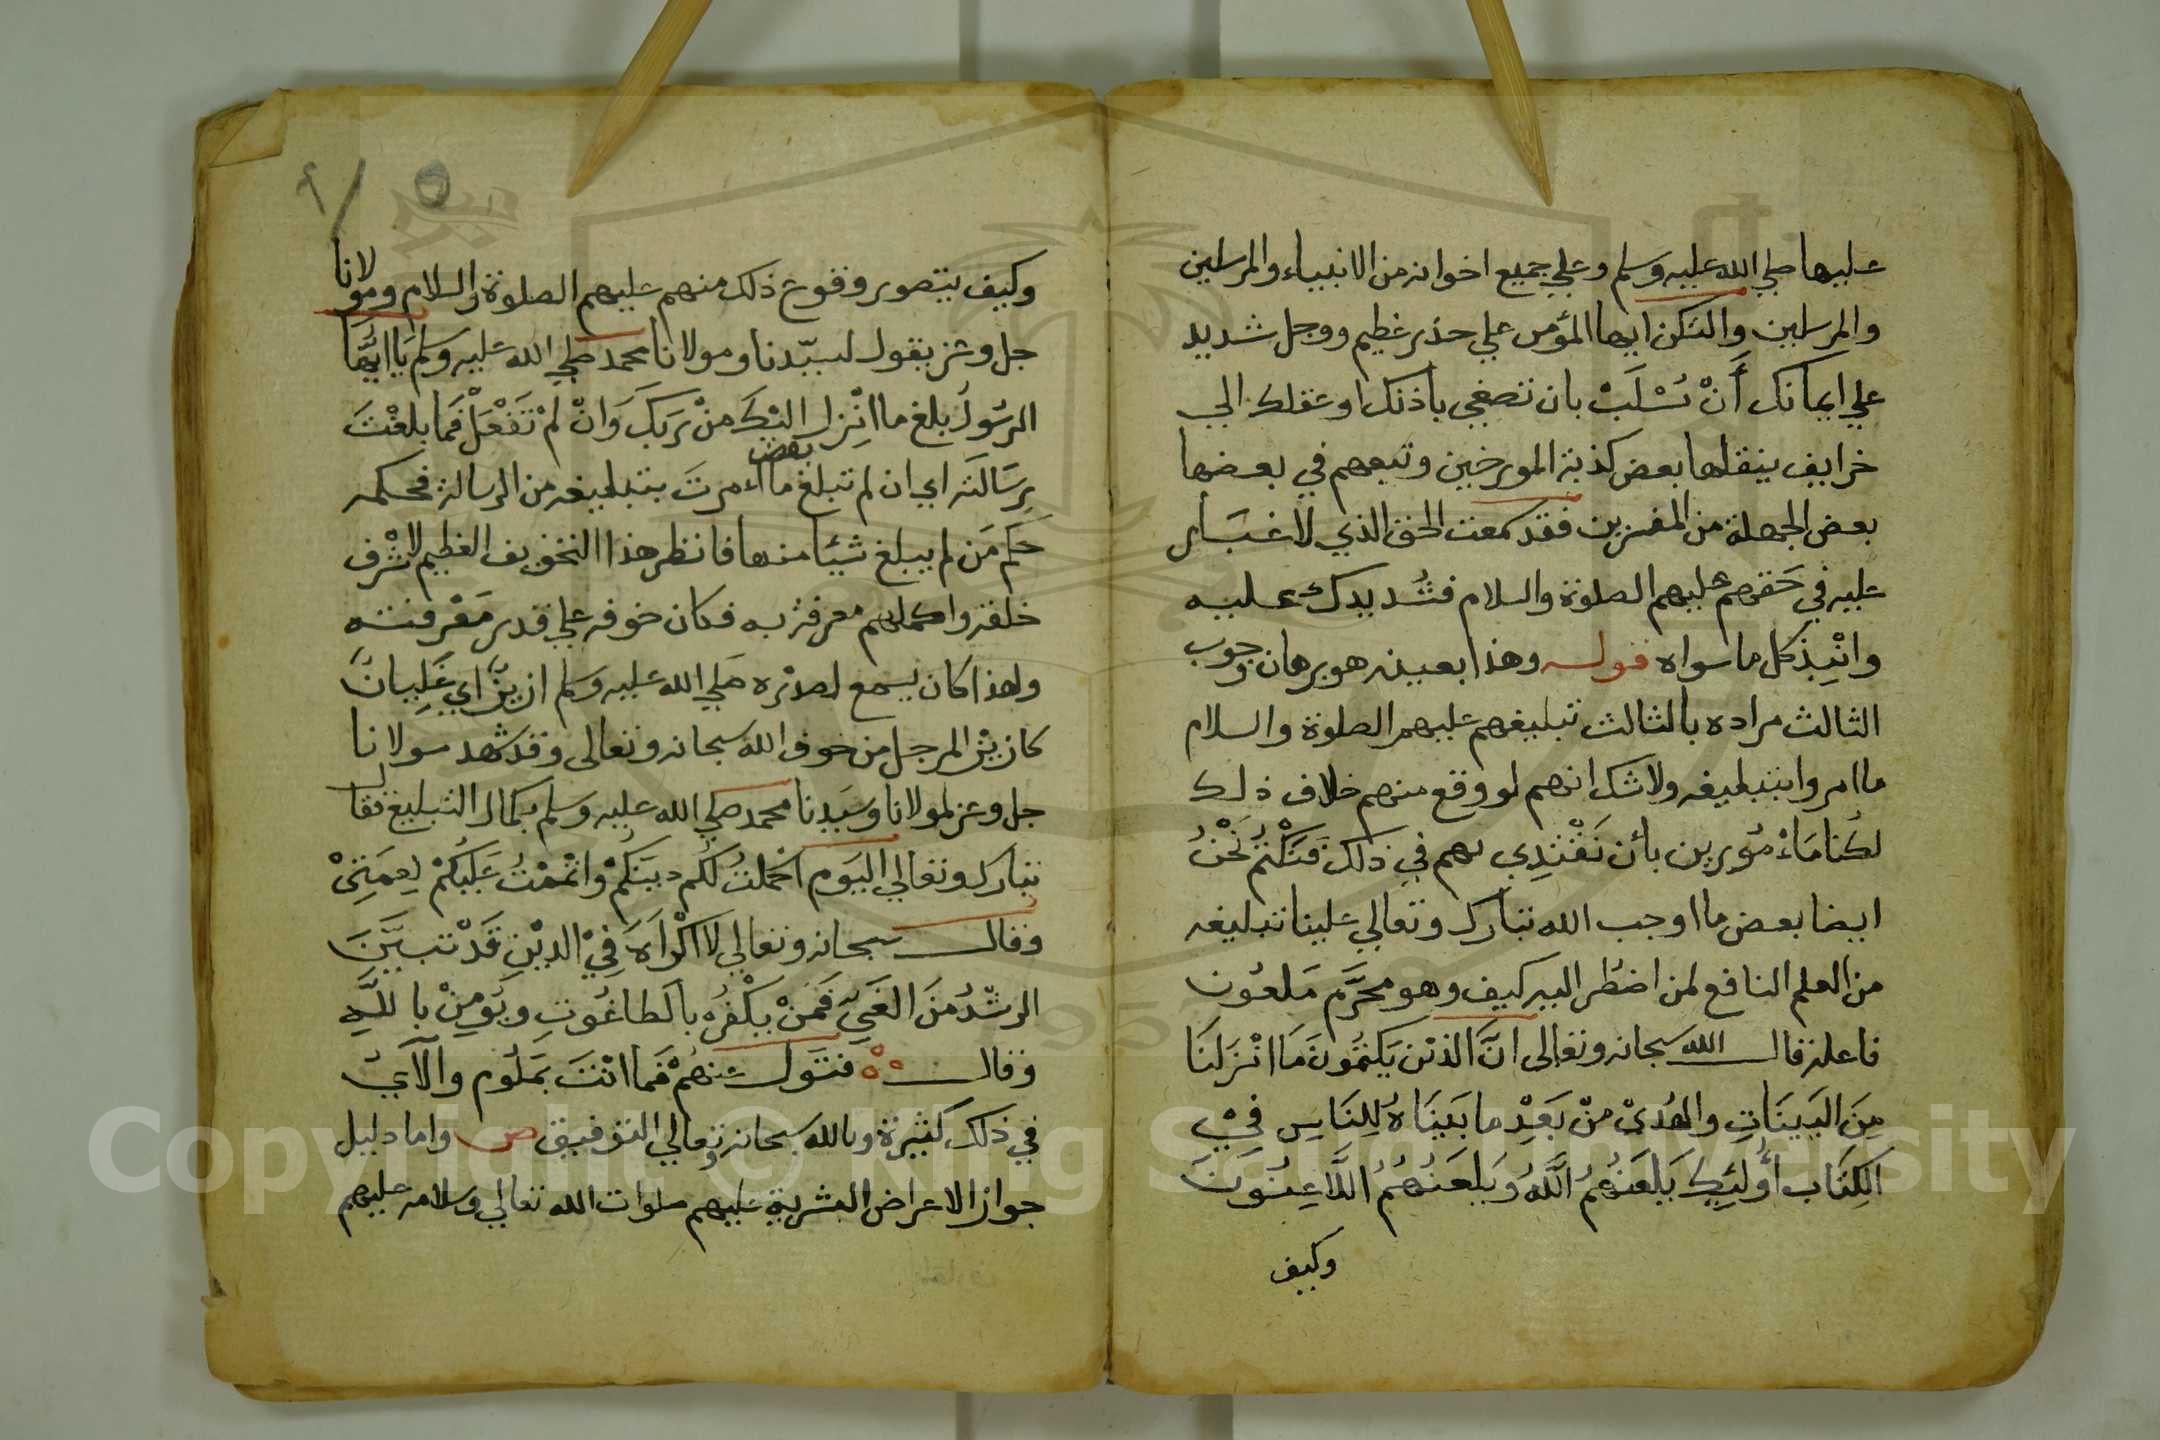 عليها صلي الله عليه وسلم وعلي جميع اخوانه من الانبياء والمرسلين
والمرسلين والتكن ايها المؤمن علي حذر عظيم ووجل شديد
علي ايمانك أَنْ تُسْلَبْ بان تصغي باذنك او عقلك الي
خرايف ينقلها بعض كذبة المورخين وتبعهم في بعضها
بعض الجهلة من المفسرين فقد سمعت الحق الذي لا غبار
عليه في حقهم عليهم الصلوة والسلام فشد يدك عليه
وانبِذ كل ما سواه قوله وهذا بعينه هو برهان وجوب
الثالث مراده بالثالث تبليغهم عليهم الصلوة والسلام
ما امروا بتبليغه ولا شك انهم لو وقع منهم خلاف ذلك
لكُنا مَاءْمُورين بأن نَقْتَدِي بهم في ذلك فنكْتمُ نَحْنُ
ايضا بعض ما اوجب الله تبارك وتعالي علينا تبليغه
من العلم النافع لمن اضطر اليه كيف وهو محرَّم مَلعُون
فاعله قال الله سبحانه وتعالى انَّ الذين يَكتمُونَ مَا انْزَلنَا
مِنَ البَينَاتِ والهُدىْ مِنْ بَعَدِْ ما بَينَاهُ لِلنَاسِ فِيْ
الكِتَاب أُولئِكَ يَلعَنُهُمُ اللَّهُ وَيَلعَنُهُمُ اللَّاعِنُونَ
وكيف
٩
وكيف يتصور وقوع ذلك منهم عليهم الصلوة والسلام ومولانا
جل وعز يقول لسيّدنا ومولانا محمد صلي الله عليه وسلم يَا ايُّهَا
الرسُولُ بلغ ما انْزِل اليْكَ مِنْ رَبكَ وَانْ لمْ تَفْعَلْ فَمَا بلغْتَ
رِسَالتَه اي ان لم تبلغ بعض ما اءمرتَ بتبليغه من الرسالة فحكمه
حكم مَن لم يبلغ شيئا منها فانظر هذا التخويف العظيم لاشْرف
خلقه واكملهم معرفة به فكان خوفه علي قدر مَعْرفته
ولهذا كان يسمع لصدْره صلي الله عليه وسلم ازيزٌ اي غَلِيانٌ
كازيز المرجل من خوف الله سبحانه وتعالى وقد شهد مولانا
جل وعز لمولانا وسيدنا محمد صلي الله عليه وسلم بكمال التبليغ فقال
تبارك وتعالي اليَوم اكْملتُ لكُم دينَكُمْ واتْممْتُ عَليكُمْ نِعمَتِيْ
وقال سبحانه وتعالي لا اكْرَاهَ فِيْ الدِيْنِ قَدْ تبيَّنَ
الرشْدُ مِنَ الغَيِّ فَمَنْ يَكْفرُ بالطاغُوتِ ويُومِنْ باللَّهِ
وقال فتَول عنهُمْ فَما انْتَ بمَلُومٍ والآيُ
في ذلك كثيرة وبالله سبحانه وتعالي التوفيق ص واما دليل
جواز الاعراض البشرية عليهم صلوات الله تعالي وسلامه عليهم
Copyright © King Saud University